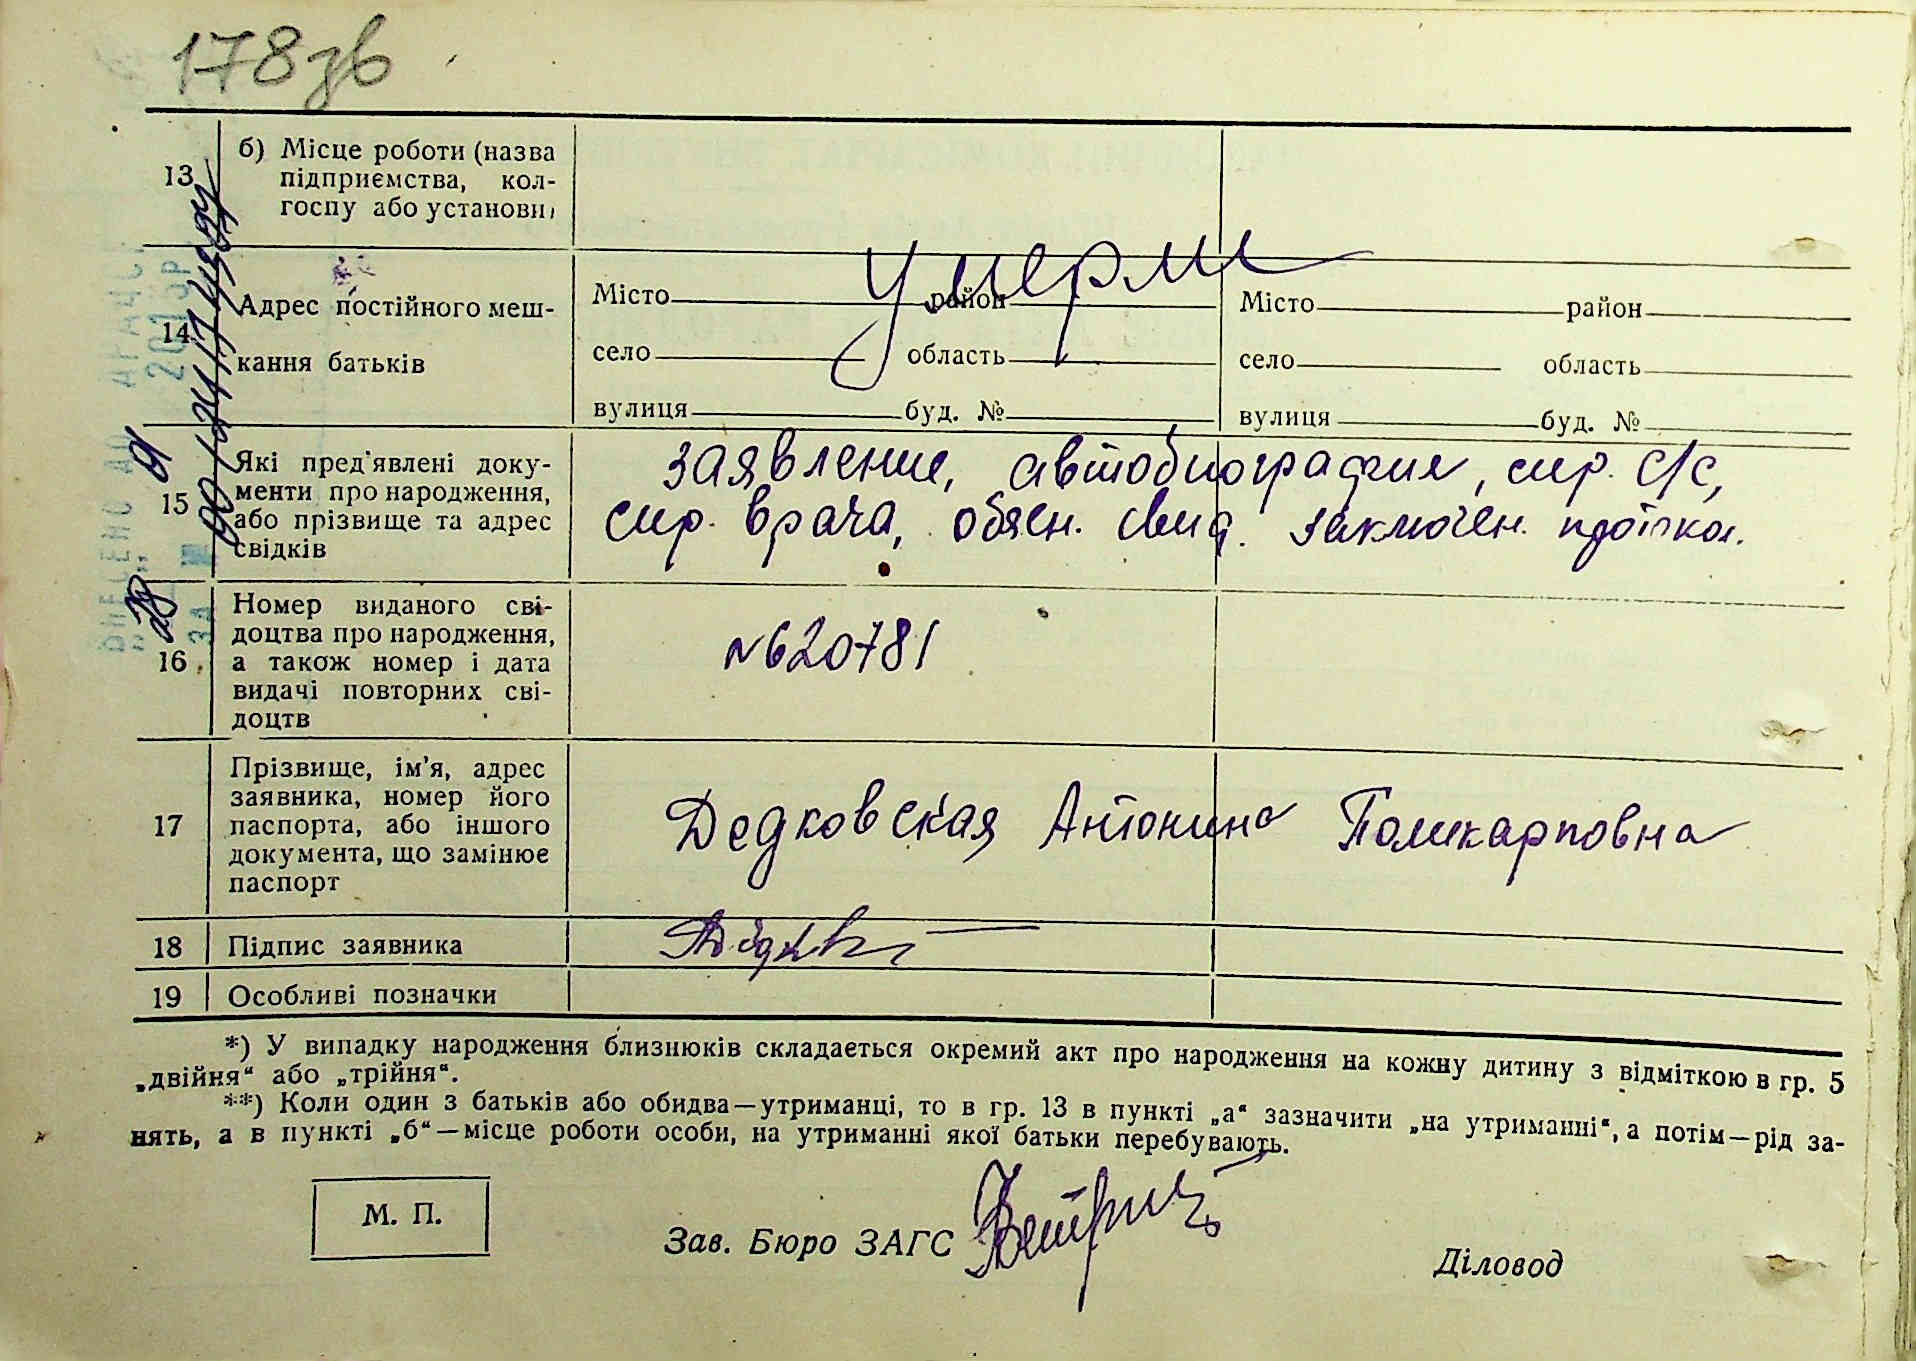 178зв
13
б) Місце роботи (назва
підприємства, кол-
госпу або установи)
14
Адрес постійного меш-
кання батьків
умерли
Місто район
село область
вулиця буд. №
Місто район
село область
вулиця буд. №
15
Які пред'явлені доку-
менти про народження,
або прізвище та адрес
свідків
заявление, автобиография, спр. с/с,
спр. врача, объсн. свид. заключен.
16
Номер виданого сві-
доцтва про народження,
а також номер і дата
видачі повторних сві-
доцтв
№620781
17
Прізвище, ім'я, адрес
заявника, номер його
паспорта, або іншого
документа, що замінює
паспорт
Дедковская Антонина Поликарповна
18
Підпис заявника
19
Особливі позначки
*) У випадку народження близнюків складається окремий акт про народження на кожну дитину з відміткою в гр. 5
„двійня“ або „трійня“.
**) Коли один з батьків або обидва—утриманці, то в гр. 13 в пункті „а“ зазначити „на утриманні“, а потім—рід за-
нять, а в пункті „б“—місце роботи особи, на утриманні якої батьки перебувають.
М. П.
Зав. Бюро ЗАГС
Діловод